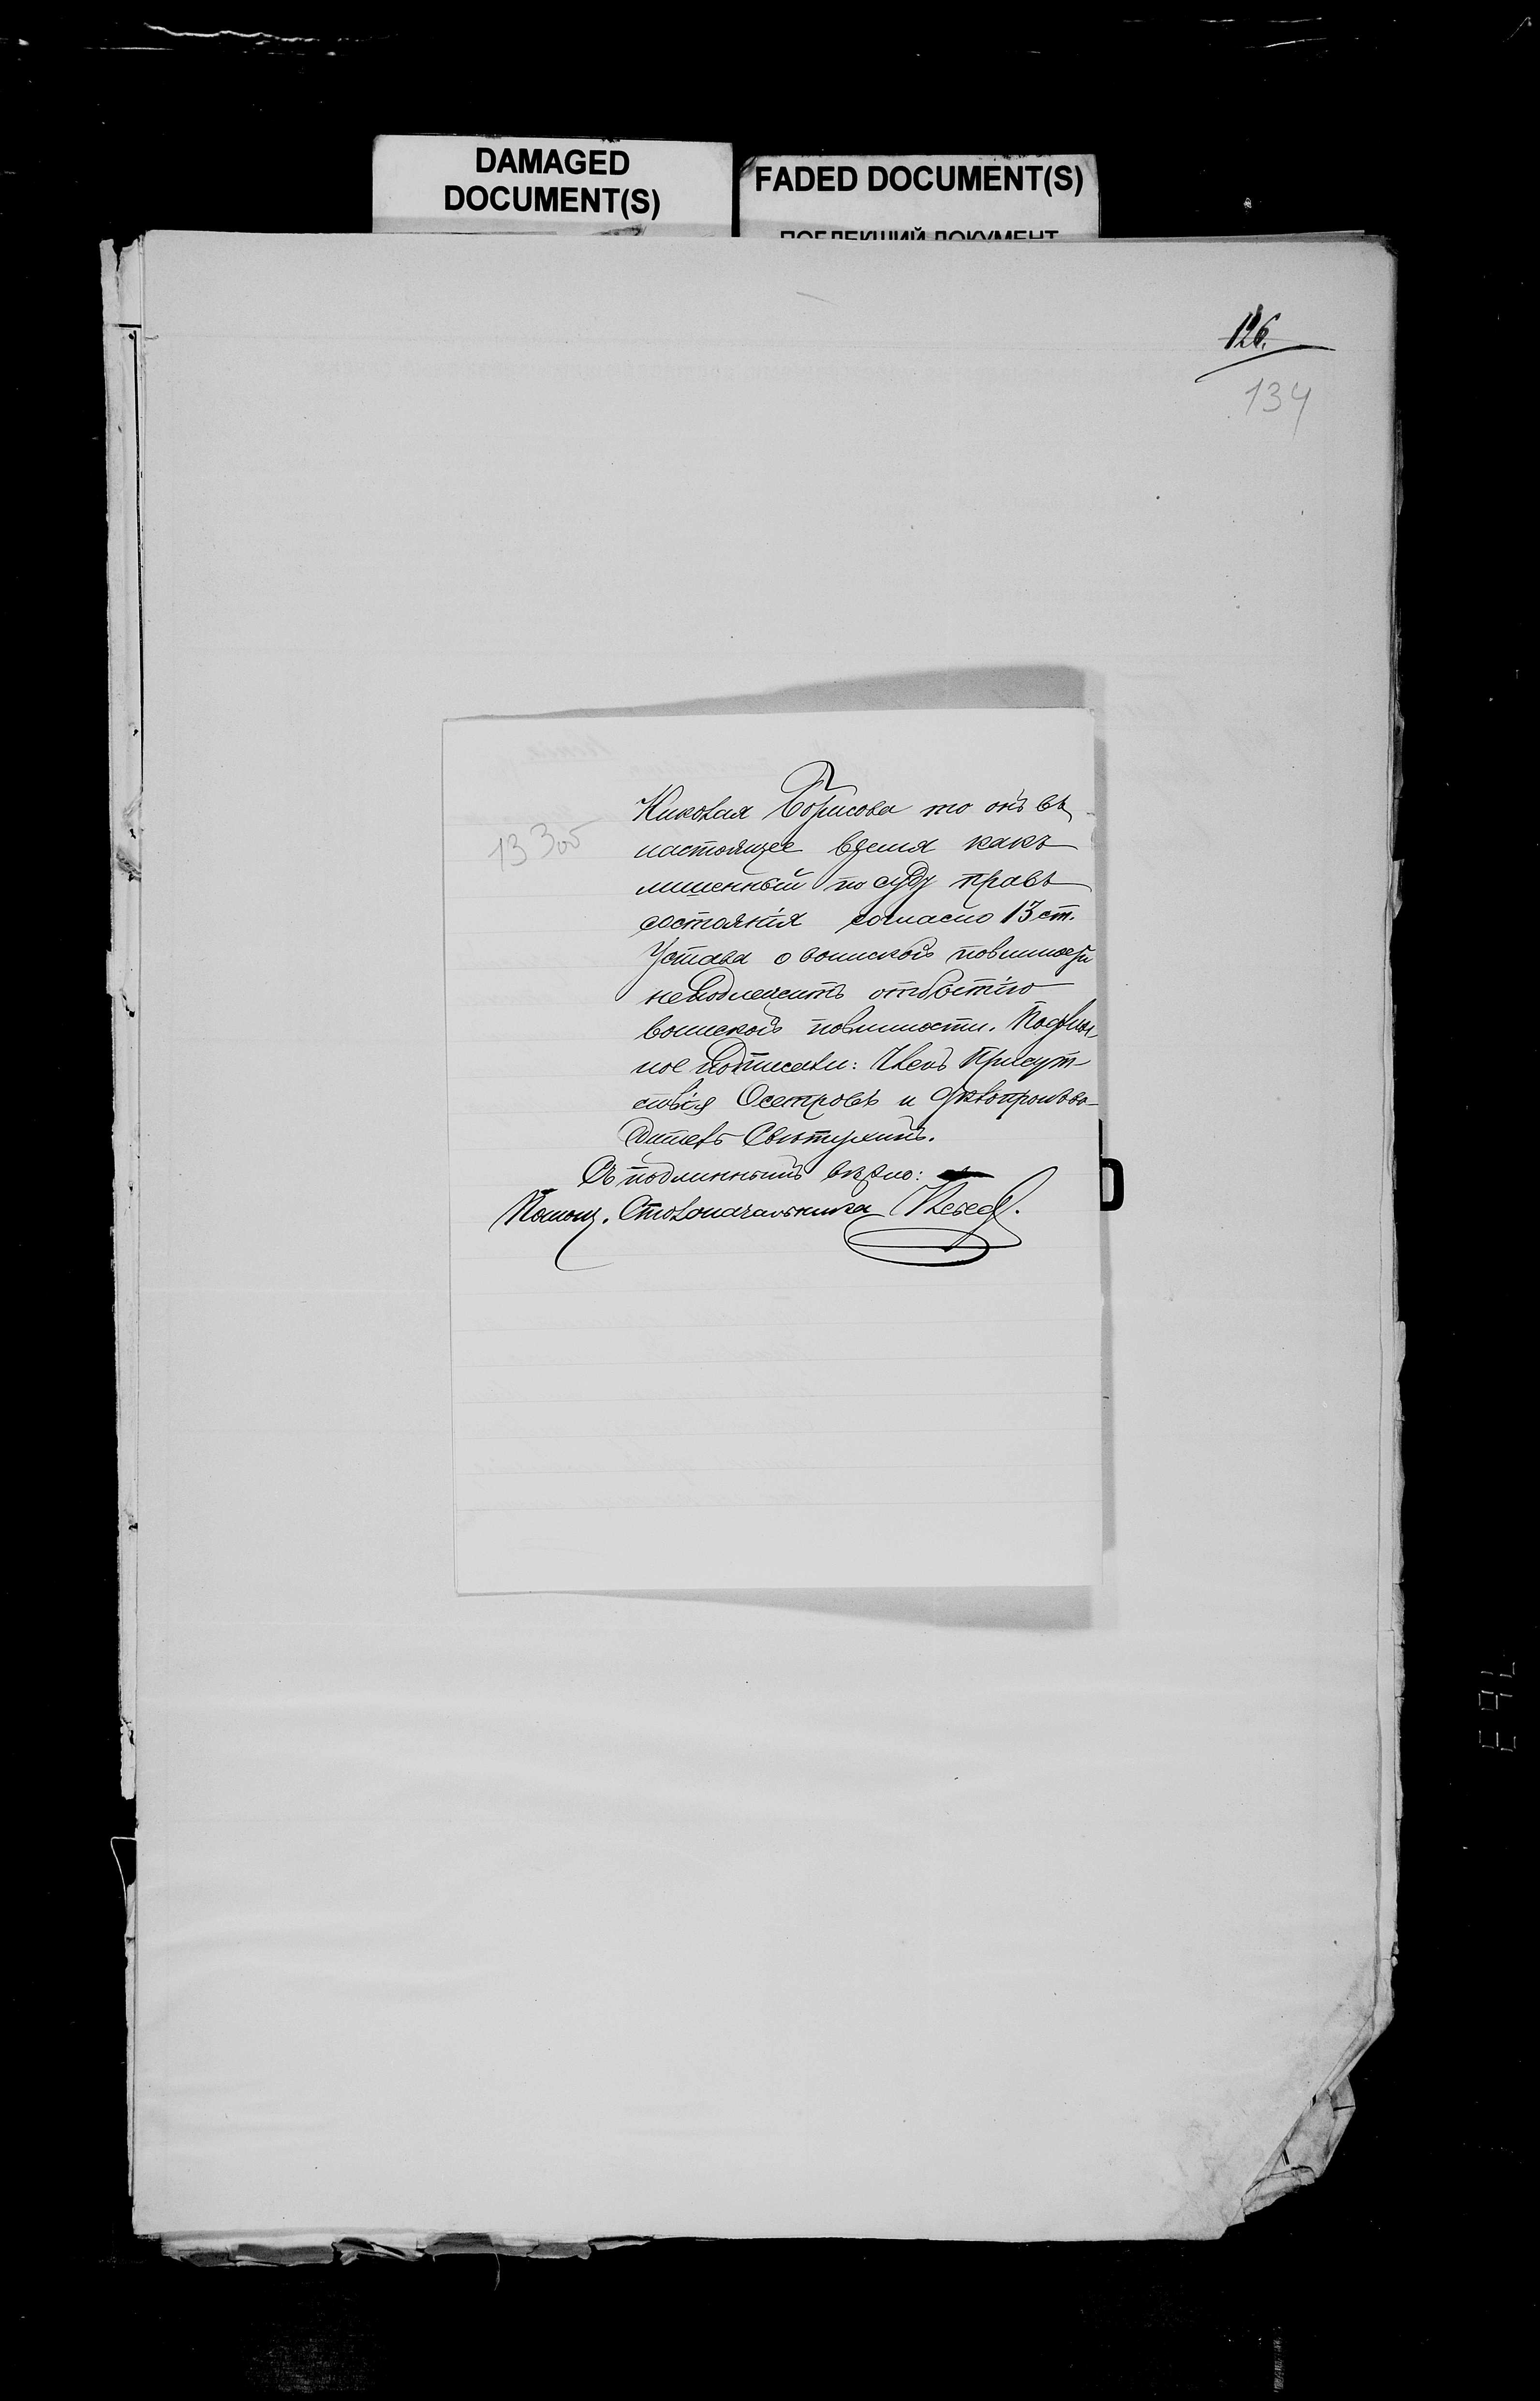 DAMAGED
DOCUMENT(S)
FADED DOCUMENT(S)
ПОБЛЕКШИЙ ДОКУМЕНТ
126.
134
Николая Борисова то онъ въ
настоящее время какъ
лишенный по суду правъ
состоянія согласно 13 ст.
Устава о воинской повинности
неподлежитъ отбытію
воинской повинности. Подлин-
ное подписали: Членъ Присут-
ствія Осетровъ и Дѣлопроизво-
дитель Свѣтухинъ.
Съ подлиннымъ вѣрно:
Помощ. Столоначальника